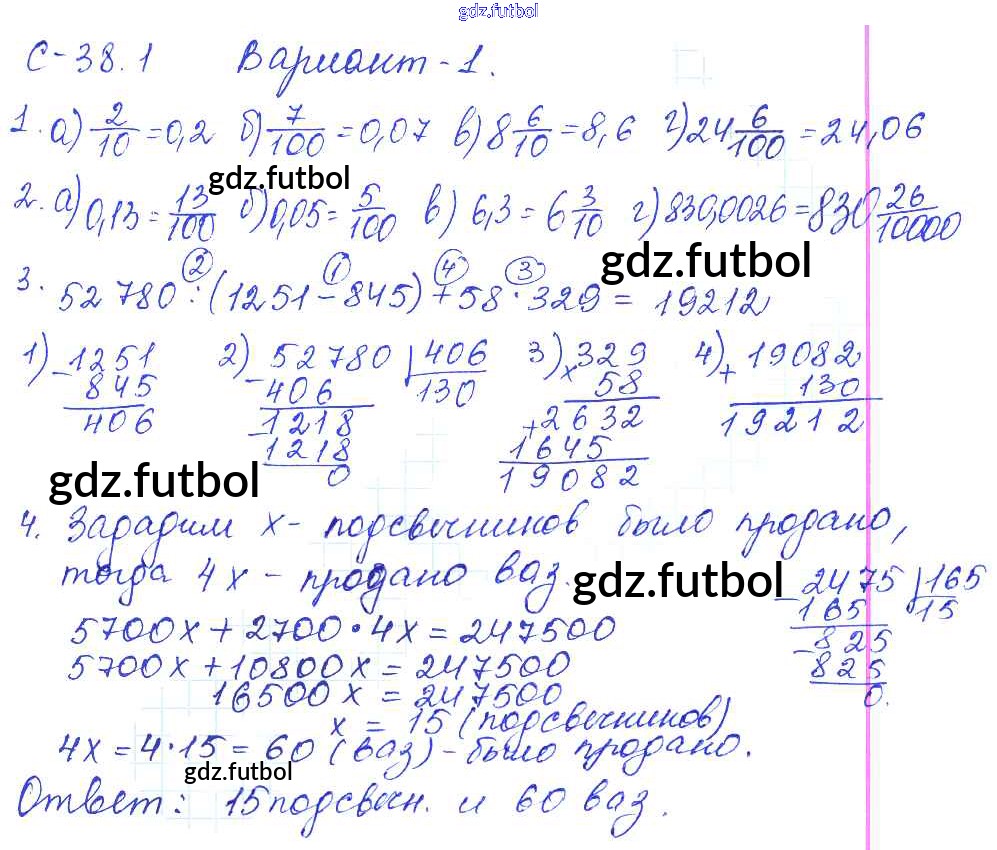 gdz.futbol
С-38.1 Вариант-1.
1. а) 2/10 = 0,2 б) 7/100 = 0,07 в) 8 6/10 = 8,6 г) 24 6/100 = 24,06
gdz.futbol
2. а) 0,13 = 13/100 б) 0,05 = 5/100 в) 6,3 = 6 3/10 г) 830,0026 = 830 26/10000
gdz.futbol
② ① ④ ③
3. 52780 : (1251 - 845) + 58 · 329 = 19212
1) - 1251 2) - 52780 | 406 3) × 329 4) + 19082
845 406 130 58 130
406 - 1218 + 2632 19212
1218 1645
0 19082
gdz.futbol
4. Зададим x - подсвечников было продано,
тогда 4x - продано ваз. - 2475 | 165
gdz.futbol
165 15
5700x + 2700 · 4x = 247500 - 825
5700x + 10800x = 247500 825
16500x = 247500 0.
x = 15 (подсвечников)
4x = 4 · 15 = 60 (ваз) - было продано.
gdz.futbol
Ответ: 15 подсвечн. и 60 ваз.